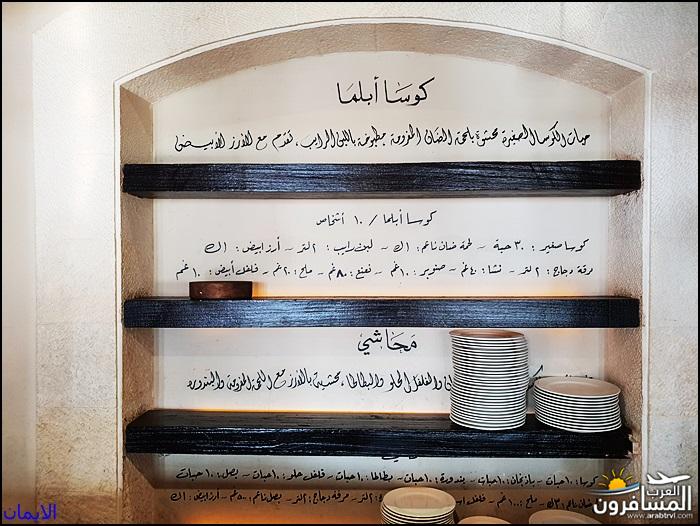 كوسا أبلما
حبات الكوسا الصغيرة محشوة بلحم الضان المفرومة مطبوخة باللبن الرايب، تقدم مع الأرز الأبيض
كوسا أبلما / ١٠ أشخاص
كوسا صغير: ٣٠ حبة - لحمة ضان ناعم: ١ك - لبن رايب: ٢لتر - أرز أبيض: ١ك
مرقة دجاج: ٢لتر - نشا: ٤٠غم - صنوبر: ١٠٠غم - نعنع: ٨٠غم - ملح: ٢٠غم - فلفل أبيض: ١٠غم
محاشي
والفلفل الحلو والبطاطا، محشية بالأرز مع اللحمة المفرومة والبندورة
كوسا: ١٠حبات - باذنجان: ١٠حبات - بندورة: ١٠حبات - بطاطا: ١٠حبات - فلفل حلو: ١٠حبات - بصل: ١٠حبات
دجاج: ٢لتر - أرز أبيض: ١ك
العرب
المسافرون
www.arabtrvl.com
الايمان